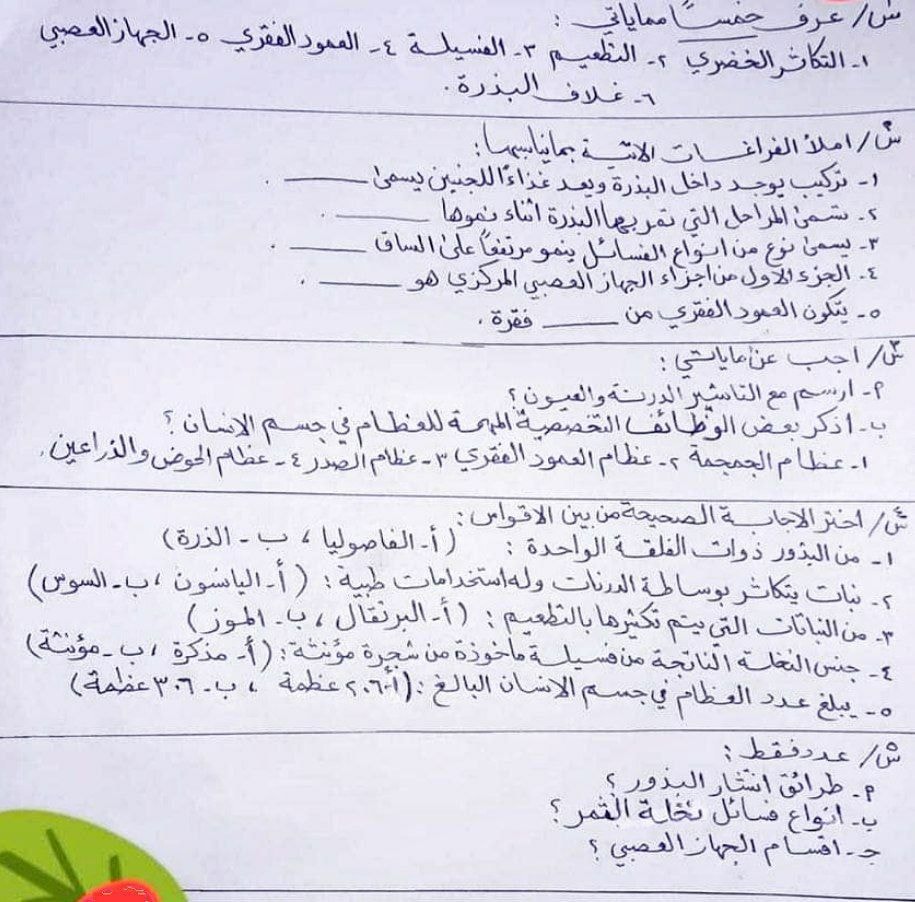 س١/ عرف خمساً مماياتي :
١- التكاثر الخضري ٢- التطعيم ٣- الفسيلة ٤- العمود الفقري ٥- الجهاز العصبي
٦- غلاف البذرة .
س٢/ املأ الفراغات الاتية بمايناسبها :
١- تركيب يوجد داخل البذرة ويعد غذاءً للجنين يسمى ـــــــــ .
٢- تسمى المراحل التي تمر بها البذرة اثناء نموها ـــــــــ .
٣- يسمى نوع من انواع الفسائل ينمو مرتفعاً على الساق ـــــــــ .
٤- الجزء الاول من اجزاء الجهاز العصبي المركزي هو ـــــــــ .
٥- يتكون العمود الفقري من ـــــــــ فقرة .
س٣/ اجب عن ماياتي :
٩- ارسم مع التاشير الدرنة والعيون ؟
ب- اذكر بعض الوظائف التخصصية المهمة للعظام في جسم الانسان ؟
١- عظام الجمجمة ٢- عظام العمود الفقري ٣- عظام الصدر ٤- عظام الحوض والذراعين .
س٤/ اختر الاجابة الصحيحة من بين الاقواس :
١- من البذور ذوات الفلقة الواحدة : (أ- الفاصوليا ، ب- الذرة)
٢- نبات يتكاثر بوساطة الدرنات وله استخدامات طبية : (أ- اليانسون ، ب- السوس)
٣- من النباتات التي يتم تكثيرها بالتطعيم : (أ- البرتقال ، ب- الموز)
٤- جنس النخلة الناتجة من فسيلة ماخوذة من شجرة مؤنثة : (أ- مذكرة ، ب- مؤنثة)
٥- يبلغ عدد العظام في جسم الانسان البالغ : (أ- ٢٠٦ عظمة ، ب- ٣٠٦ عظمة)
س٥/ عدد فقط :
٩- طرائق انتشار البذور ؟
ب- انواع فسائل نخلة التمر ؟
جـ- اقسام الجهاز العصبي ؟